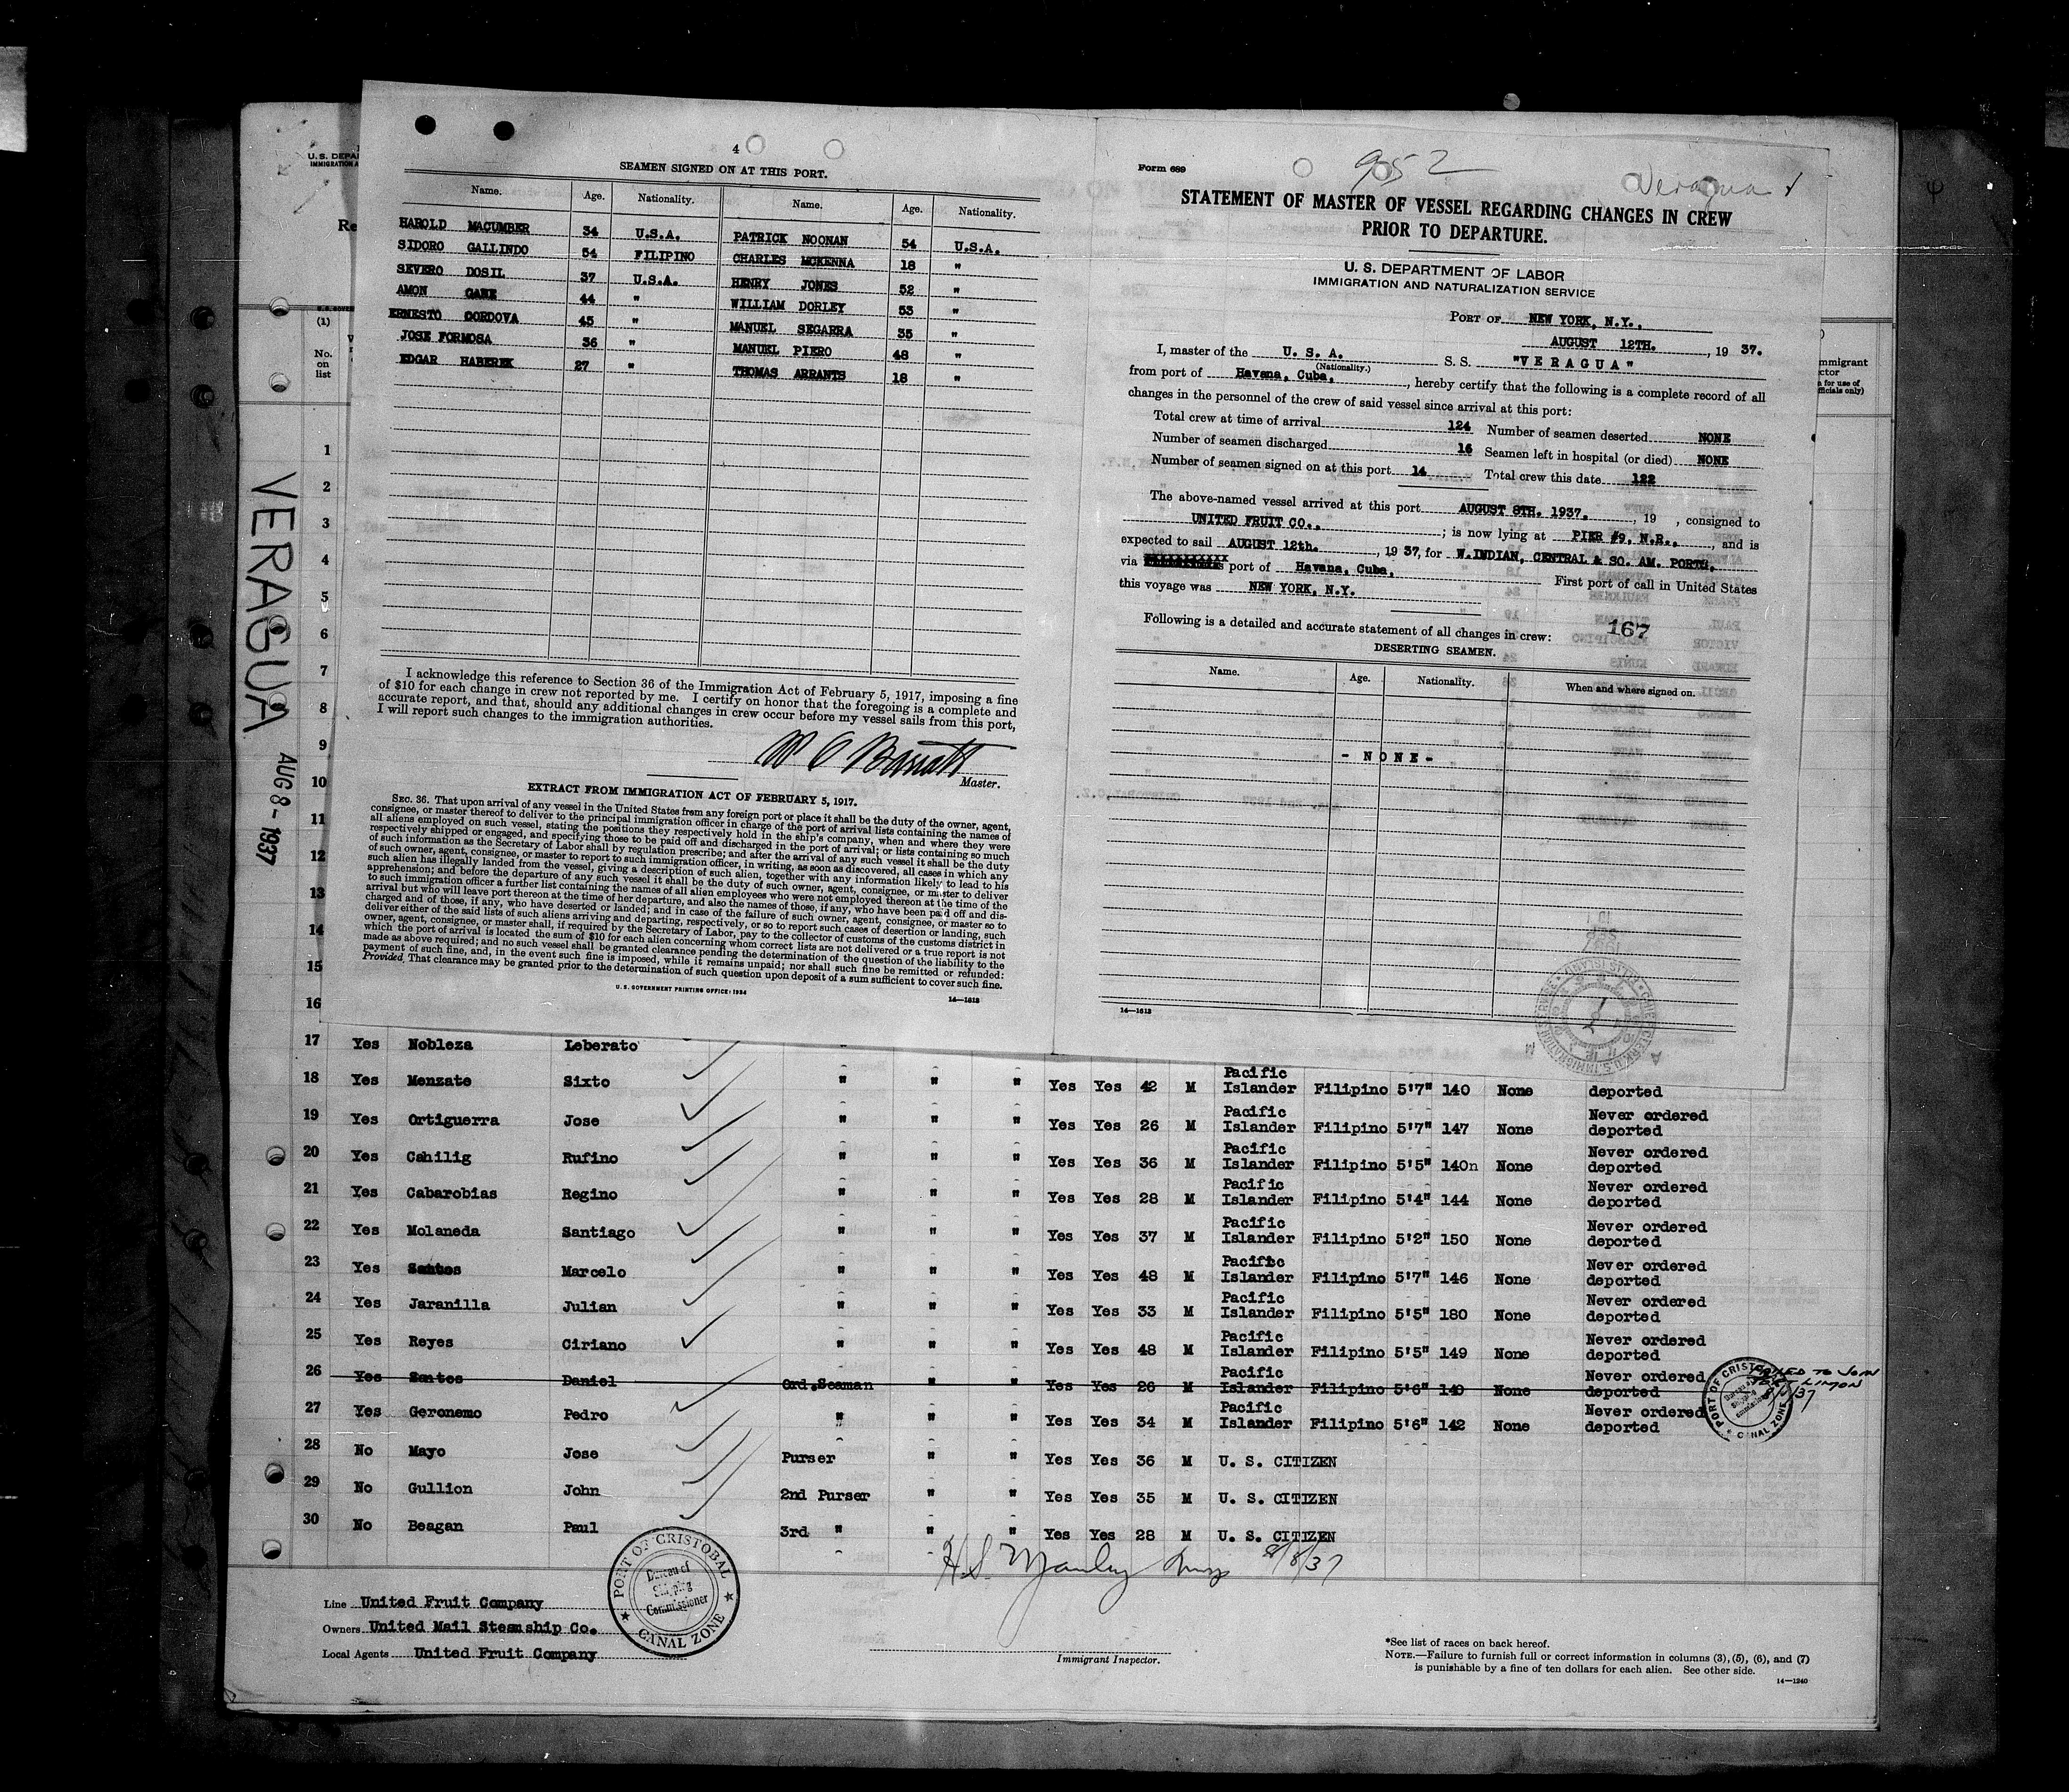 4
SEAMEN SIGNED ON AT THIS PORT.
Name. Age. Nationality. Name. Age. Nationality.
HAROLD MACUMBER 34 U.S.A. PATRICK NOONAN 54 U.S.A.
SIDORO GALLINDO 54 FILIPINO CHARLES MCKENNA 18 "
SEVERO DOSIL 37 U.S.A. HENRY JONES 52 "
AMON GANE 44 " WILLIAM DORLEY 53 "
ERNESTO CORDOVA 45 " MANUEL SEGARRA 35 "
JOSE FORMOSA 36 " MANUEL PIERO 48 "
EDGAR HABEREK 27 " THOMAS ARRANTS 18 "
I acknowledge this reference to Section 36 of the Immigration Act of February 5, 1917, imposing a fine
of $10 for each change in crew not reported by me. I certify on honor that the foregoing is a complete and
accurate report, and that, should any additional changes in crew occur before my vessel sails from this port,
I will report such changes to the immigration authorities.
Master.
EXTRACT FROM IMMIGRATION ACT OF FEBRUARY 5, 1917.
SEC. 36. That upon arrival of any vessel in the United States from any foreign port or place it shall be the duty of the owner, agent,
consignee, or master thereof to deliver to the principal immigration officer in charge of the port of arrival lists containing the names of
all aliens employed on such vessel, stating the positions they respectively hold in the ship's company, when and where they were
respectively shipped or engaged, and specifying those to be paid off and discharged in the port of arrival; or lists containing so much
of such information as the Secretary of Labor shall by regulation prescribe; and after the arrival of any such vessel it shall be the duty
of such owner, agent, consignee, or master to report to such immigration officer, in writing, as soon as discovered, all cases in which any
such alien has illegally landed from the vessel, giving a description of such alien, together with any information likely to lead to his
apprehension; and before the departure of any such vessel it shall be the duty of such owner, agent, consignee, or master to deliver
to such immigration officer a further list containing the names of all alien employees who were not employed thereon at the time of the
arrival but who will leave port thereon at the time of her departure, and also the names of those, if any, who have been paid off and dis-
charged and of those, if any, who have deserted or landed; and in case of the failure of such owner, agent, consignee, or master so to
deliver either of the said lists of such aliens arriving and departing, respectively, or so to report such cases of desertion or landing, such
owner, agent, consignee, or master shall, if required by the Secretary of Labor, pay to the collector of customs of the customs district in
which the port of arrival is located the sum of $10 for each alien concerning whom correct lists are not delivered or a true report is not
made as above required; and no such vessel shall be granted clearance pending the determination of the question of the liability to the
payment of such fine, and, in the event such fine is imposed, while it remains unpaid; nor shall such fine be remitted or refunded:
Provided, That clearance may be granted prior to the determination of such question upon deposit of a sum sufficient to cover such fine.
U. S. GOVERNMENT PRINTING OFFICE: 1934 14—1613
Form 689
952
Veragua
STATEMENT OF MASTER OF VESSEL REGARDING CHANGES IN CREW
PRIOR TO DEPARTURE.
U. S. DEPARTMENT OF LABOR
IMMIGRATION AND NATURALIZATION SERVICE
PORT OF NEW YORK, N.Y.,
AUGUST 12TH. , 19 37.
I, master of the U. S. A. S. S. "VERAGUA"
(Nationality.)
from port of Havana, Cuba, , hereby certify that the following is a complete record of all
changes in the personnel of the crew of said vessel since arrival at this port:
Total crew at time of arrival 124 Number of seamen deserted NONE
Number of seamen discharged 16 Seamen left in hospital (or died) NONE
Number of seamen signed on at this port 14 Total crew this date 122
The above-named vessel arrived at this port AUGUST 8TH. 1937. , 19 , consigned to
UNITED FRUIT CO., ; is now lying at PIER #9, N.R., , and is
expected to sail AUGUST 12th. , 19 37, for W.INDIAN, CENTRAL & SO. AM. PORTS,
via port of Havana, Cuba, First port of call in United States
this voyage was NEW YORK, N.Y.
Following is a detailed and accurate statement of all changes in crew: 167
DESERTING SEAMEN.
Name. Age. Nationality. When and where signed on.
- NONE -
14—1613
U. S. DEPA
IMMIGRATION A
Re
(1)
No.
on
list
mmigrant
ctor
VERAGUA AUG 8 - 1937
1
2
3
4
5
6
7
8
9
10
11
12
13
14
15
16
17 Yes Nobleza Leberato
18 Yes Menzate Sixto " " " Yes Yes 42 M Pacific Islander Filipino 5'7" 140 None deported
19 Yes Ortiguerra Jose " " " Yes Yes 26 M Pacific Islander Filipino 5'7" 147 None Never ordered deported
20 Yes Cahilig Rufino " " " Yes Yes 36 M Pacific Islander Filipino 5'5" 140n None Never ordered deported
21 Yes Cabarobias Regino " " " Yes Yes 28 M Pacific Islander Filipino 5'4" 144 None Never ordered deported
22 Yes Molaneda Santiago " " " Yes Yes 37 M Pacific Islander Filipino 5'2" 150 None Never ordered deported
23 Yes Santos Marcelo " " " Yes Yes 48 M Pacific Islander Filipino 5'7" 146 None Never ordered deported
24 Yes Jaranilla Julian " " " Yes Yes 33 M Pacific Islander Filipino 5'5" 180 None Never ordered deported
25 Yes Reyes Ciriano " " " Yes Yes 48 M Pacific Islander Filipino 5'5" 149 None Never ordered deported
26 Yes Santos Daniel Ord.Seaman " " Yes Yes 26 M Pacific Islander Filipino 5'6" 140 None Never ordered deported
FAILED TO JOIN
PORT LIMON
27 Yes Geronemo Pedro " " " Yes Yes 34 M Pacific Islander Filipino 5'6" 142 None Never ordered deported
28 No Mayo Jose Purser " " Yes Yes 36 M U. S. CITIZEN
29 No Gullion John 2nd Purser " " Yes Yes 35 M U. S. CITIZEN
30 No Beagan Paul 3rd " " " Yes Yes 28 M U. S. CITIZEN
PORT OF CRISTOBAL
Bureau of
Shipping
Commissioner
CANAL ZONE
H.S. Manley 8/8/37
Line United Fruit Company
Owners United Mail Steamship Co.
Local Agents United Fruit Company
Immigrant Inspector.
*See list of races on back hereof.
NOTE.—Failure to furnish full or correct information in columns (3), (5), (6), and (7)
is punishable by a fine of ten dollars for each alien. See other side.
14—1240